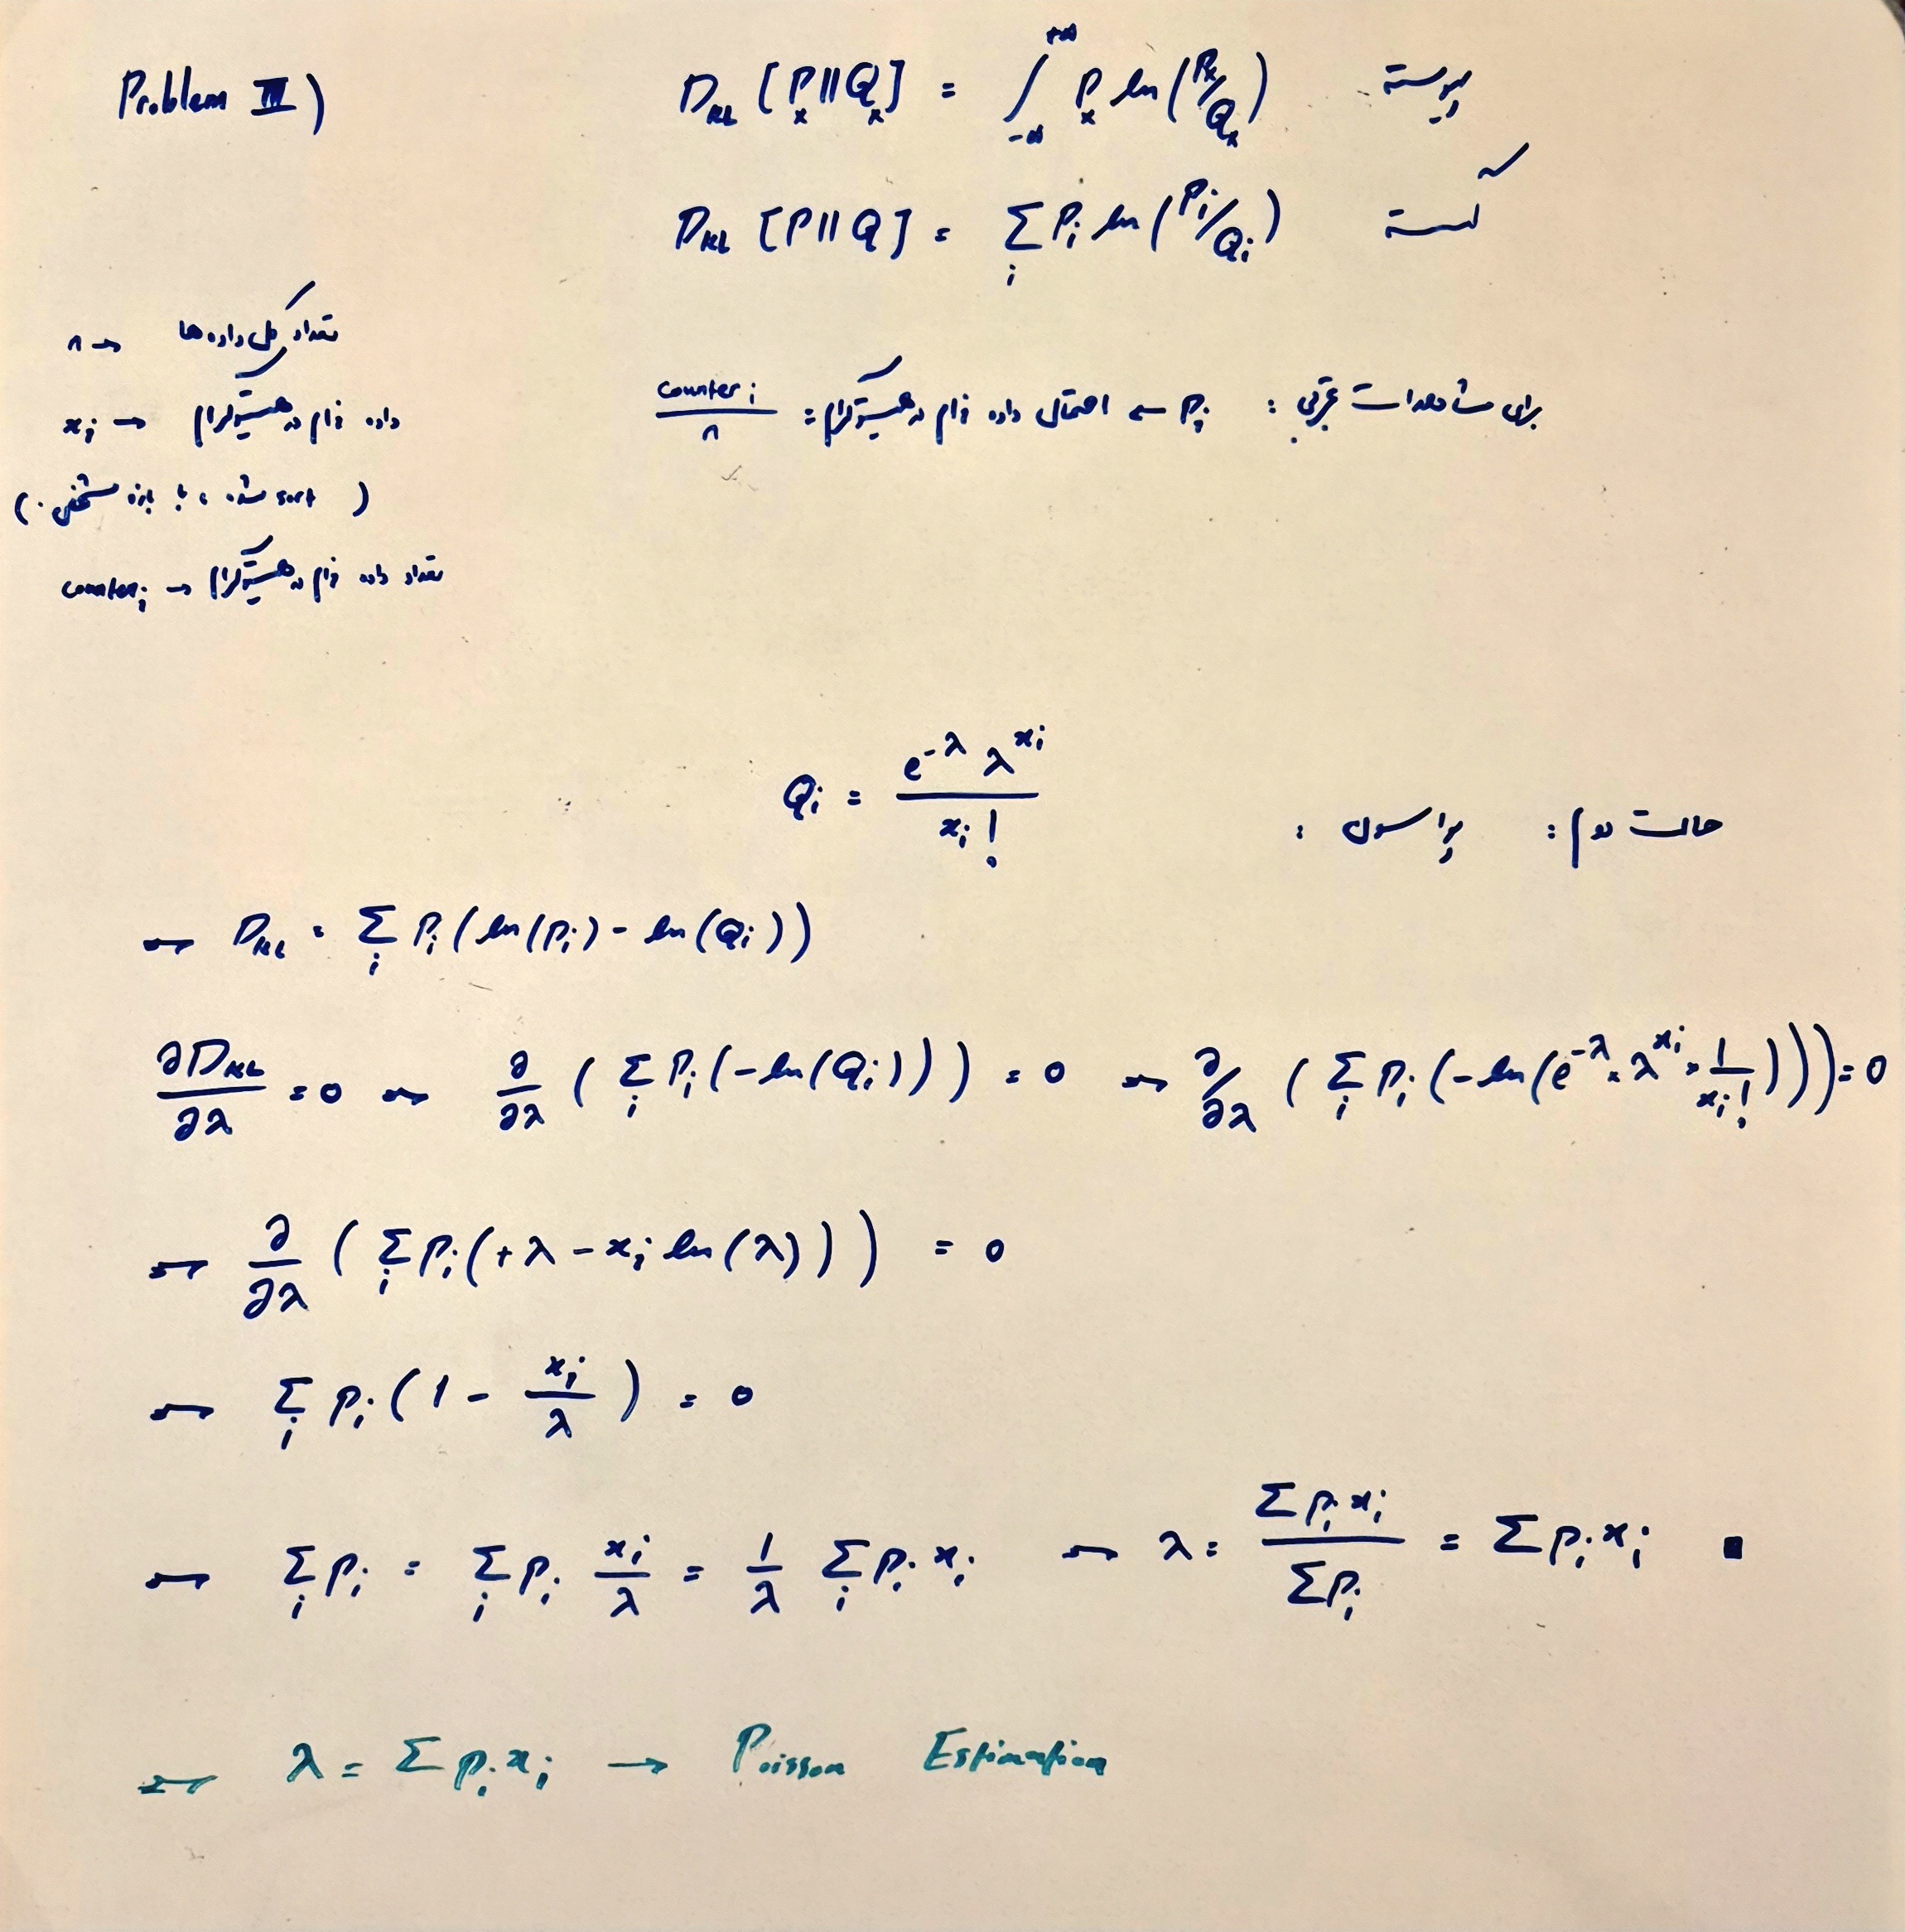 Problem III)
D_KL [P_x||Q_x] = ∫_{-∞}^{+∞} P_x ln(P_x/Q_x) پیوسته
D_KL [P||Q] = Σ_i P_i ln(P_i/Q_i) گسسته
n → تعداد کل داده ها
x_i → داده iام در هیستوگرام
( sort شده ، با بازه مشخص . )
counter_i → تعداد داده iام در هیستوگرام
برای مشاهدات تجربی : P_i → احتمال داده iام در هیستوگرام = counter_i / n
حالت دوم : پواسون : Q_i = e^{-λ} λ^{x_i} / x_i!
⇒ D_KL = Σ_i P_i (ln(P_i) - ln(Q_i))
∂D_KL/∂λ = 0 ⇒ ∂/∂λ ( Σ_i P_i (-ln(Q_i)) ) = 0 ⇒ ∂/∂λ ( Σ_i P_i (-ln(e^{-λ} × λ^{x_i} × 1/x_i!))) = 0
⇒ ∂/∂λ ( Σ_i P_i (+λ - x_i ln(λ)) ) = 0
⇒ Σ_i P_i (1 - x_i/λ) = 0
⇒ Σ_i P_i = Σ_i P_i x_i/λ = 1/λ Σ_i P_i x_i ⇒ λ = Σ P_i x_i / Σ P_i = Σ P_i x_i ■
⇒ λ = Σ P_i x_i → Poisson Estimation